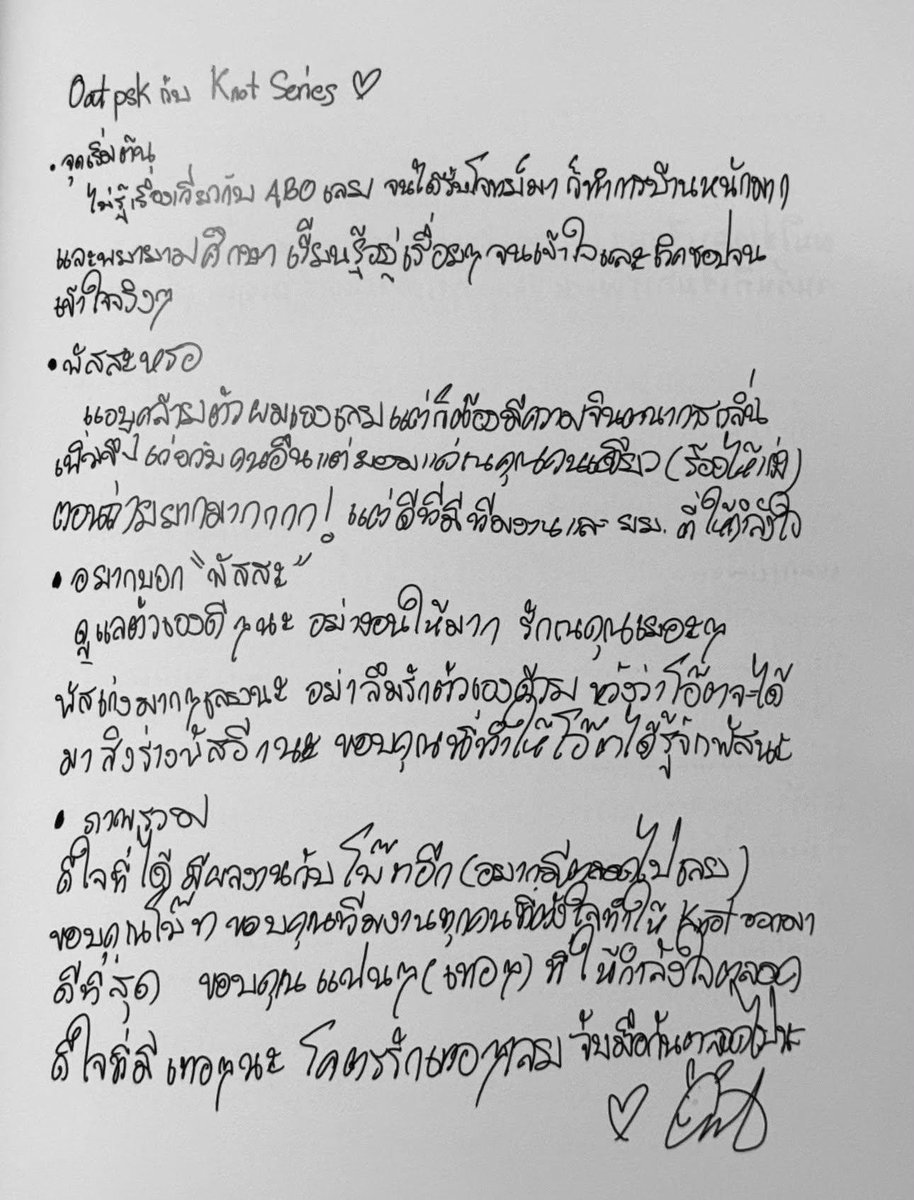 Oat psk กับ Knot Series ♡
• จุดเริ่มต้น
ไม่รู้เรื่องเกี่ยวกับ ABO เลย จนได้รับโจทย์มา ก็ทำการบ้านหนักมาก
และพยายามศึกษา เรียนรู้อยู่เรื่อยๆ จนเข้าใจและโคตรชอบจน
เข้าใจจริงๆ
• พัสสะหรอ
แอบคล้ายตัวผมเองเลย แต่ก็ต้องมีความจินตนาการกลิ่น
คนอื่นแต่มองแค่ณคุณคนเดียว (ร้องไห้แง่)
ตอนถ่ายยากมากกกก! แต่ดีที่มีทีมงานและ ผม. ที่ให้กำลังใจ
• อยากบอก "พัสสะ"
ดูแลตัวเองดีๆนะ อย่างอนให้มาก รักณคุณเยอะๆ
พัสเก่งมากๆเลยนะ อย่าลืมรักตัวเองด้วย หวังว่าโอ๊ตจะได้
มาสิงร่างพัสอีกนะ ขอบคุณที่ทำให้โอ๊ตได้รู้จักพัสนะ
• ภาพรวม
ดีใจที่ได้มีผลงานกับโบ๊ทอีก (อยากมีตลอดไปเลย)
ขอบคุณโบ๊ท ขอบคุณทีมงานทุกคนที่ตั้งใจทำให้ Knot ออกมา
ดีที่สุด ขอบคุณแฟนๆ (เทอๆ) ที่ให้กำลังใจตลอด
ดีใจที่มีเทอๆนะ โคตรรักเทอๆเลย จับมือกันตลอดไปนะ
♡